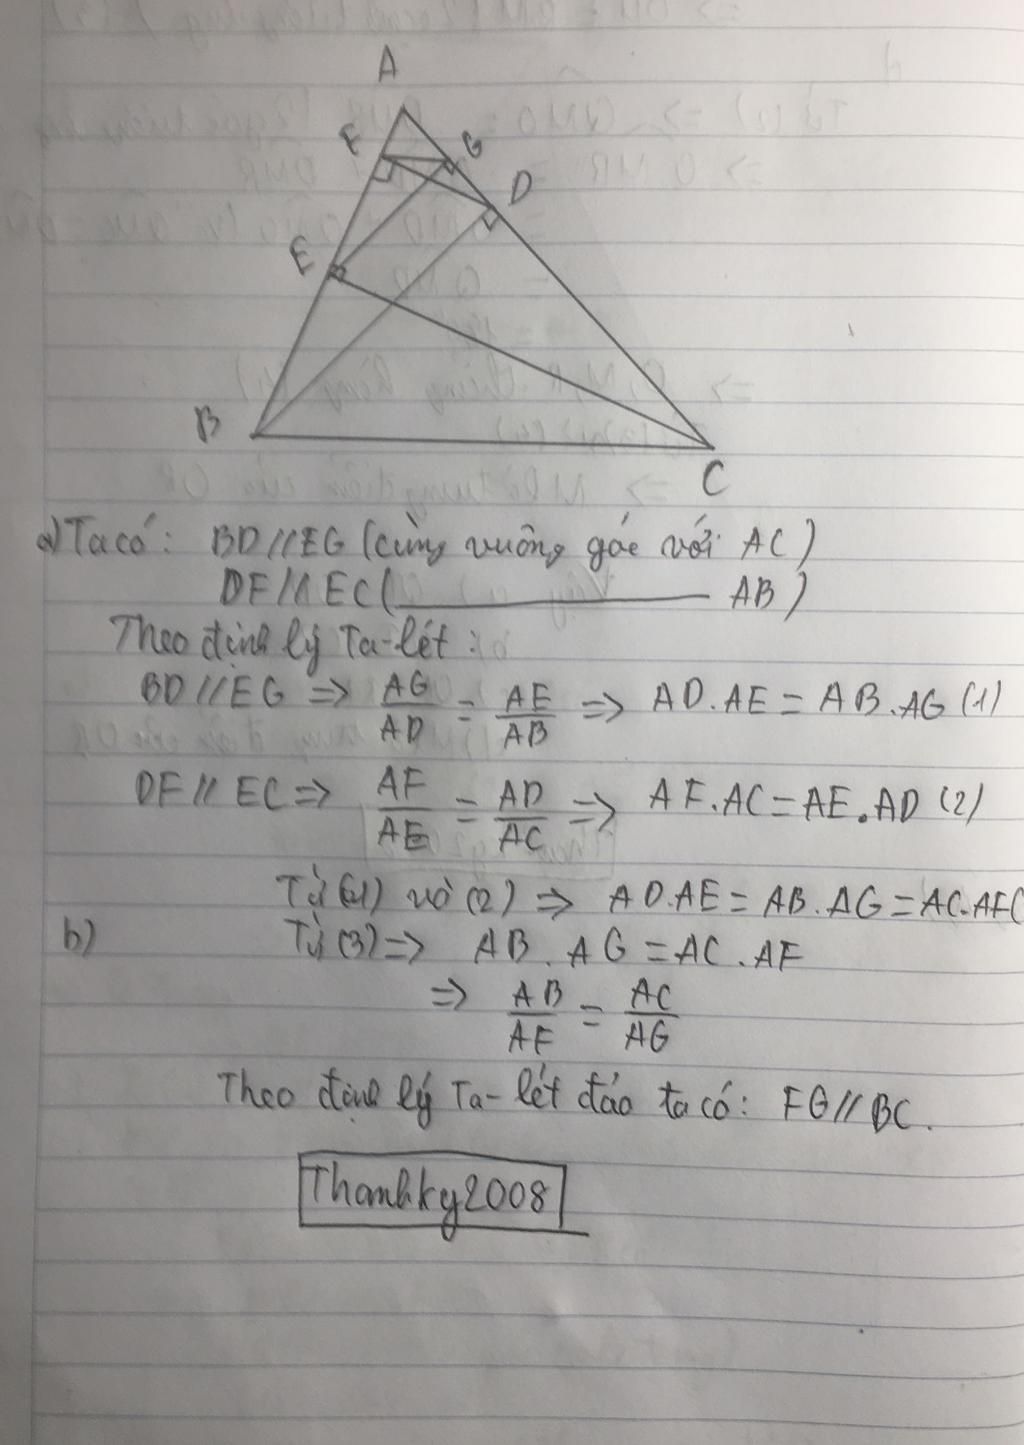 A
F
G
D
E
B
C
a) Ta có: BD // EG (cùng vuông góc với AC)
DF // EC ( ———— AB)
Theo định lý Ta-lét:
BD // EG => AG/AD = AE/AB => AD.AE = AB.AG (1)
DF // EC => AF/AE = AD/AC => AF.AC = AE.AD (2)
Từ (1) và (2) => AD.AE = AB.AG = AC.AF(
b) Từ (3) => AB.AG = AC.AF
=> AB/AF = AC/AG
Theo định lý Ta-lét đảo ta có: FG // BC.
Thanhky2008